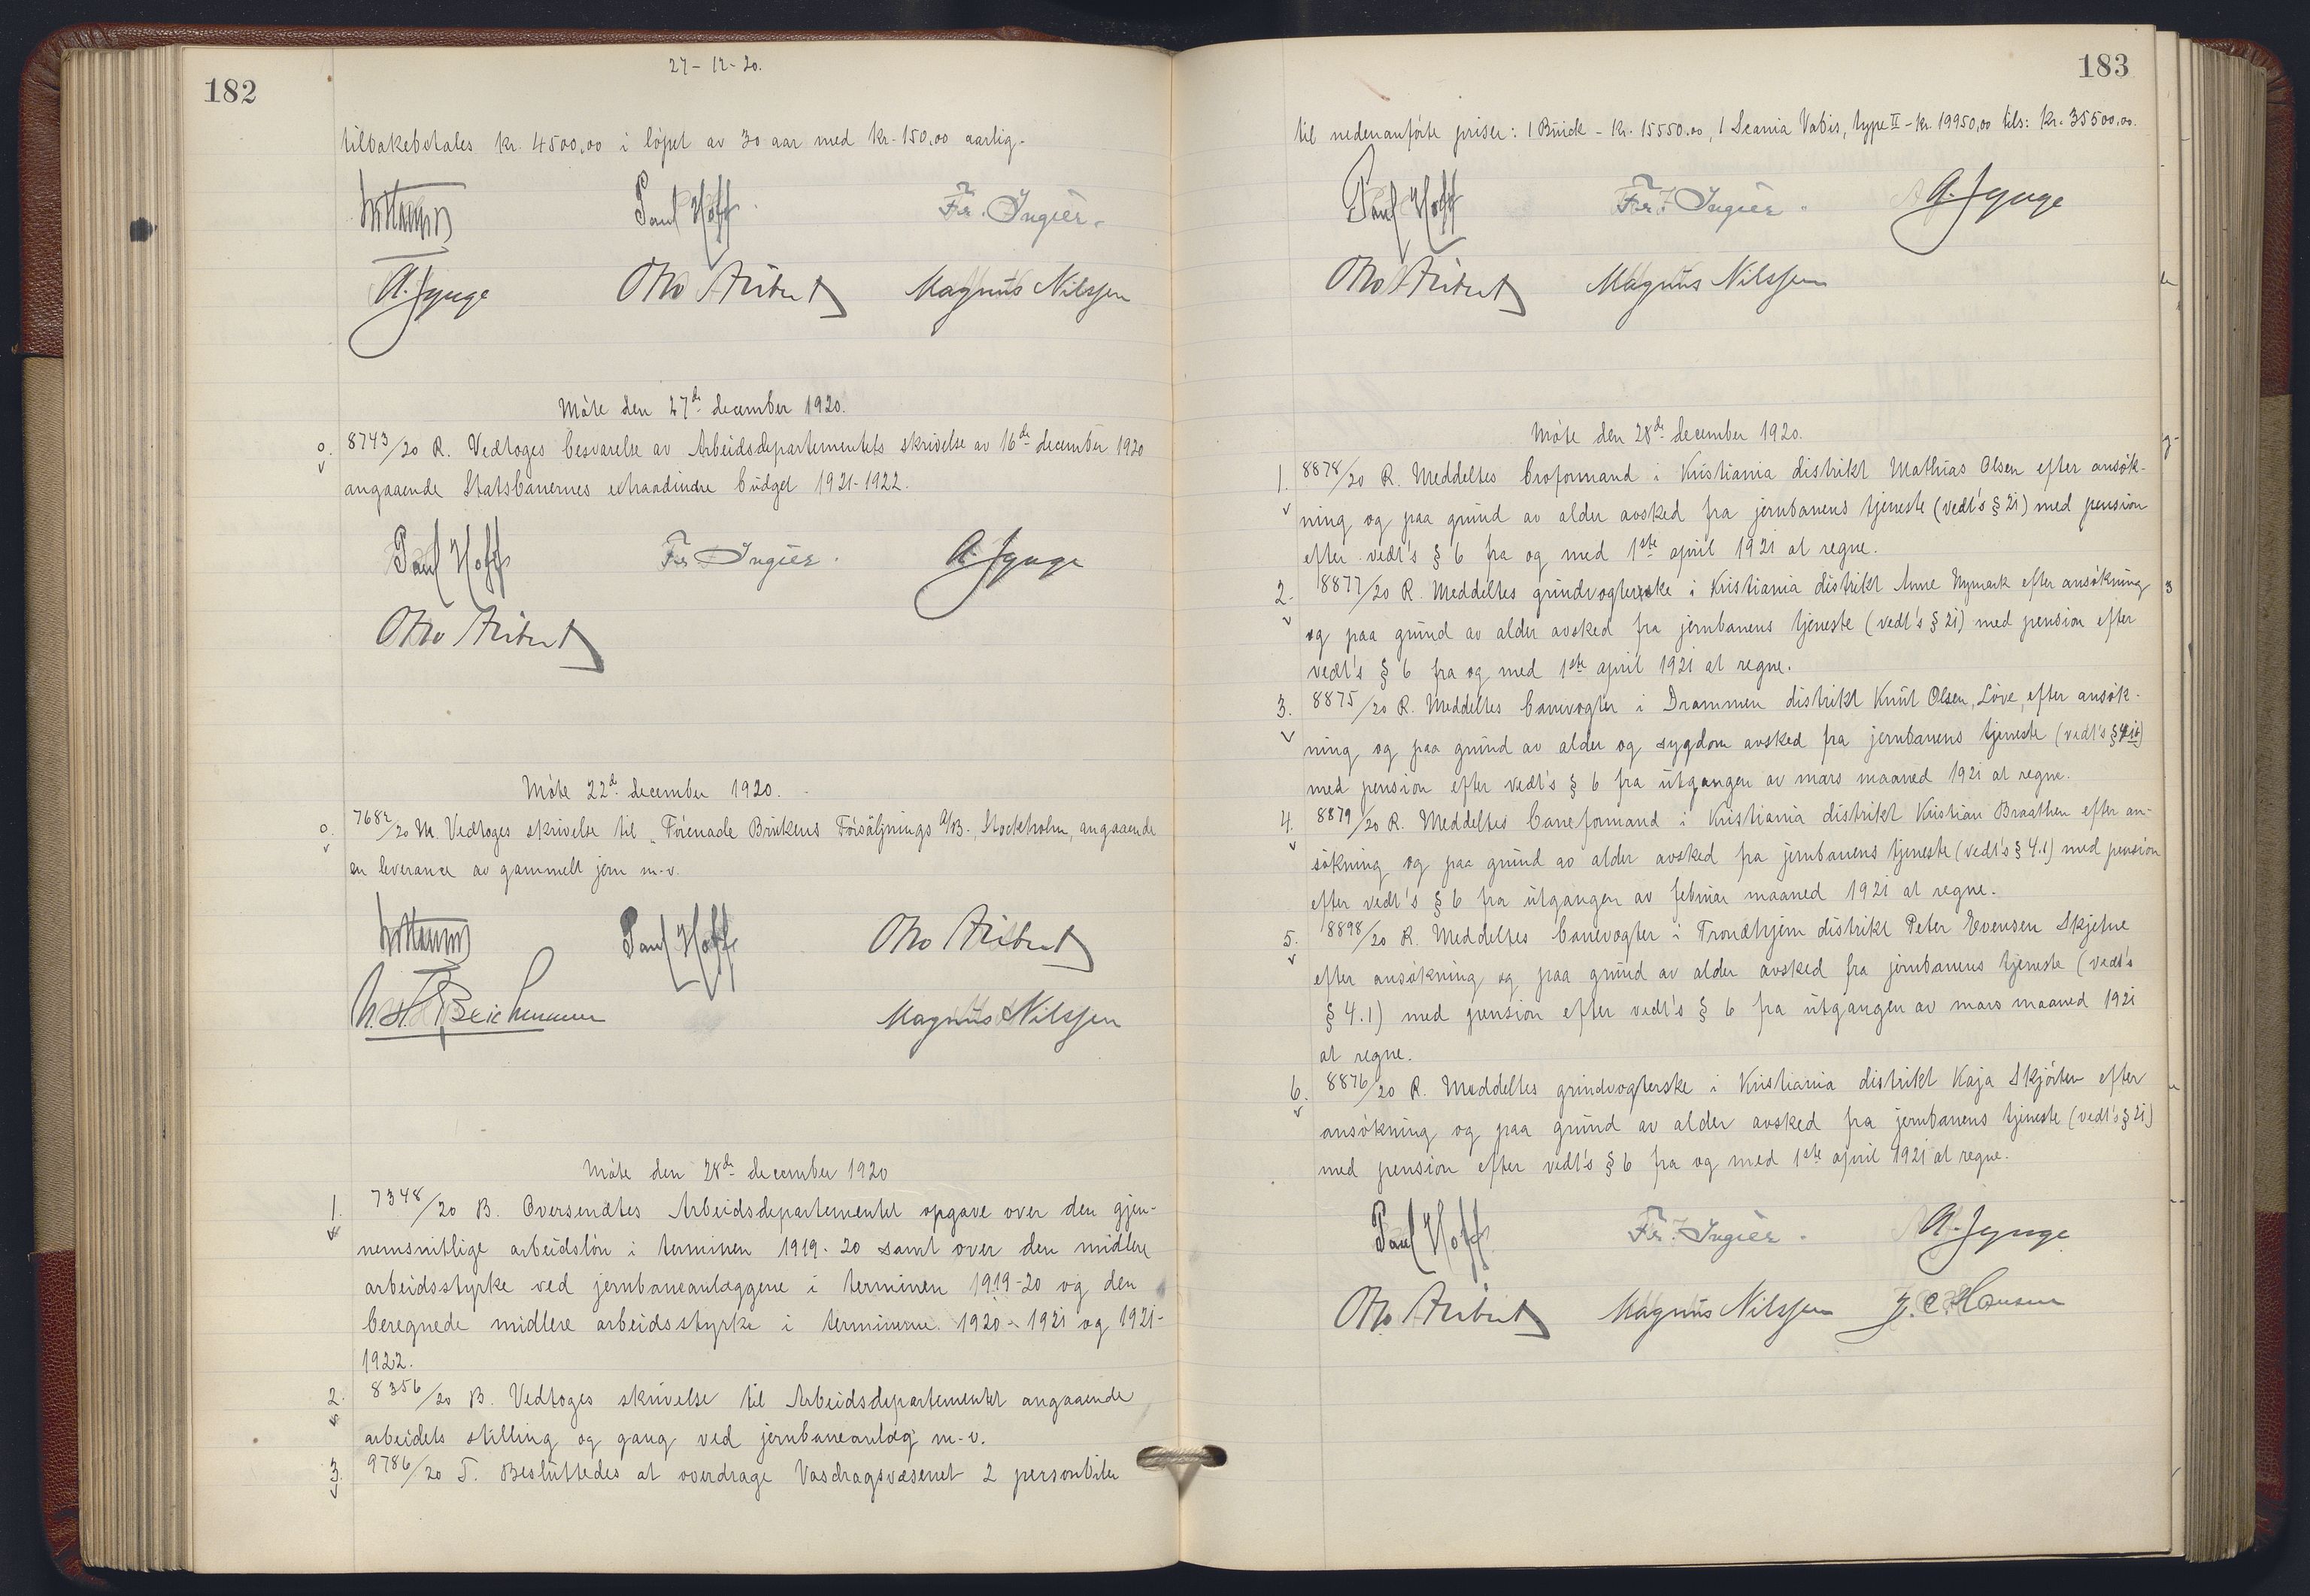 182
27-12-20.
tilbakebetales kr. 4500,00 i löpet av 30 aar med kr. 150,00 aarlig.
Paul Hoff Fr. Ingier.
A. Jynge Otto Aubert Magnus Nilssen
Möte den 27de december 1920.
0. 8743/20 R. Vedtoges besvarelse av Arbeidsdepartementets skrivelse av 16de december 1920
angaaende Statsbanernes extraordinære budget 1921-1922.
Paul Hoff Fr. Ingier. A. Jynge
Otto Aubert
Möte 22d. december 1920.
0. 7682/20 M. Vedtoges skrivelse til "Förenade Brukens Försäljnings A/B., Stockholm, angaaende
en leverance av gammelt jern m.v.
Paul Hoff Otto Aubert
Magnus Nilssen
Möte den 28de december 1920
1. 7348/20 B. Oversendtes Arbeidsdepartementet opgave over den gjen-
nemsnitlige arbeidslön i terminen 1919-20 samt over den midlere
arbeidsstyrke ved jernbaneanlæggene i terminen 1919-20 og den
beregnede midlere arbeidsstyrke i terminerne 1920-1921 og 1921-
1922.
2. 8356/20 B. Vedtoges skrivelse til Arbeidsdepartementet angaaende
arbeidets stilling og gang ved jernbaneanlæg m.v.
3. 9786/20 T. Besluttedes at overdrage Vasdragsvæsenet 2 personbiler
183
til nedenanförte priser: 1 Buick - kr. 15550.00, 1 Scania Vabis, type II - kr. 19950,00 tils: kr. 35500,00.
Paul Hoff Fr. Ingier. A. Jynge
Otto Aubert Magnus Nilssen
Möte den 28de december 1920.
1. 8878/20 R. Meddeltes broformand i Kristiania distrikt Mathias Olsen efter ansök-
ning og paa grund av alder avsked fra jernbanens tjeneste (vedt's § 21) med pension
efter vedt's § 6 fra og med 1ste april 1921 at regne.
2. 8877/20 R. Meddeltes grindvogterske i Kristiania distrikt Anne Nymark efter ansökning
og paa grund av alder avsked fra jernbanens tjeneste (vedt's § 21) med pension efter
vedt's § 6 fra og med 1ste april 1921 at regne.
3. 8875/20 R. Meddeltes banevogter i Drammen distrikt Knut Olsen, Löve, efter ansök-
ning og paa grund av alder og sygdom avsked fra jernbanens tjeneste (vedt's
med pension efter vedt's § 6 fra utgangen av mars maaned 1921 at regne.
4. 8879/20 R. Meddeltes baneformand i Kristiania distrikt Kristian Braathen efter an-
sökning og paa grund av alder avsked fra jernbanens tjeneste (vedt's § 4.1) med pension
efter vedt's § 6 fra utgangen av februar maaned 1921 at regne.
5. 8898/20 R. Meddeltes banevogter i Trondhjem distrikt Peter Evensen Skjetne
efter ansökning og paa grund av alder avsked fra jernbanens tjeneste (vedt's
§ 4.1) med pension efter vedt's § 6 fra utgangen av mars maaned 1921
at regne.
6. 8876/20 R. Meddeltes grindvogterske i Kristiania distrikt Kaja Skjörten efter
ansökning og paa grund av alder avsked fra jernbanens tjeneste (vedt's § 21)
med pension efter vedt's § 6 fra og med 1ste april 1921 at regne.
Paul Hoff Fr. Ingier. A. Jynge
Otto Aubert Magnus Nilssen J. C. Hansen